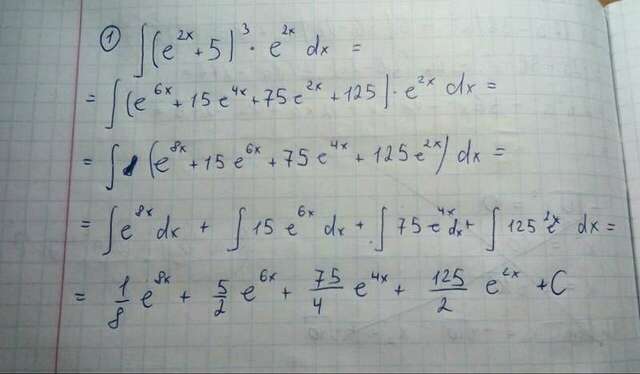 ① ∫(e^{2x} + 5)^3 · e^{2x} dx =
= ∫(e^{6x} + 15e^{4x} + 75e^{2x} + 125) · e^{2x} dx =
= ∫(e^{8x} + 15e^{6x} + 75e^{4x} + 125e^{2x}) dx =
= ∫e^{8x} dx + ∫15e^{6x} dx + ∫75e^{4x} dx + ∫125e^{2x} dx =
= 1/8 e^{8x} + 5/2 e^{6x} + 75/4 e^{4x} + 125/2 e^{2x} + C